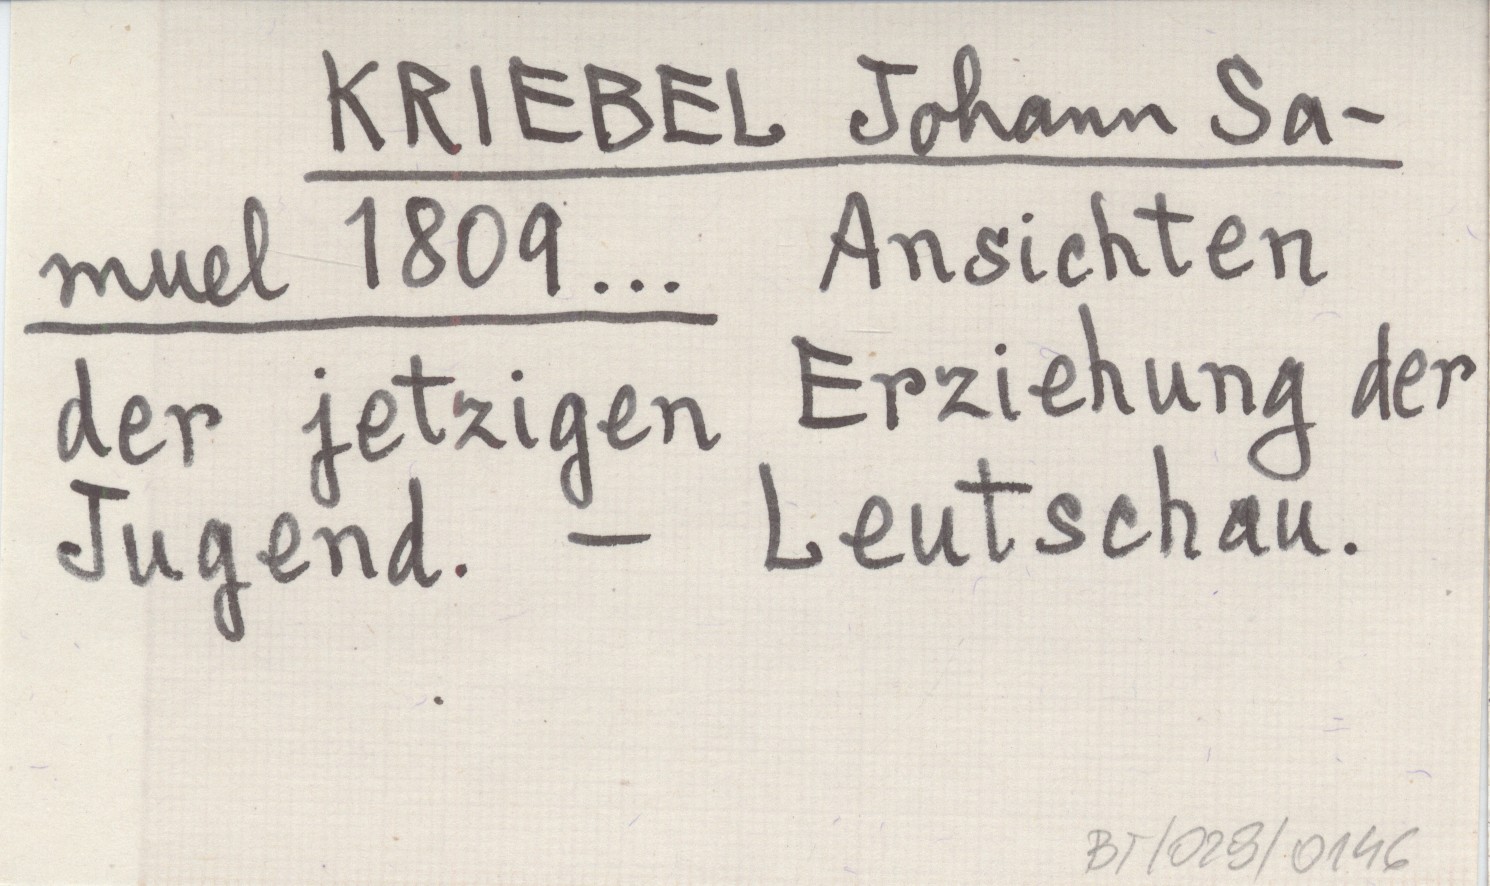 KRIEBEL Johann Sa-
muel 1809... Ansichten
der jetzigen Erziehung der
Jugend. – Leutschau.
BT/028/0146